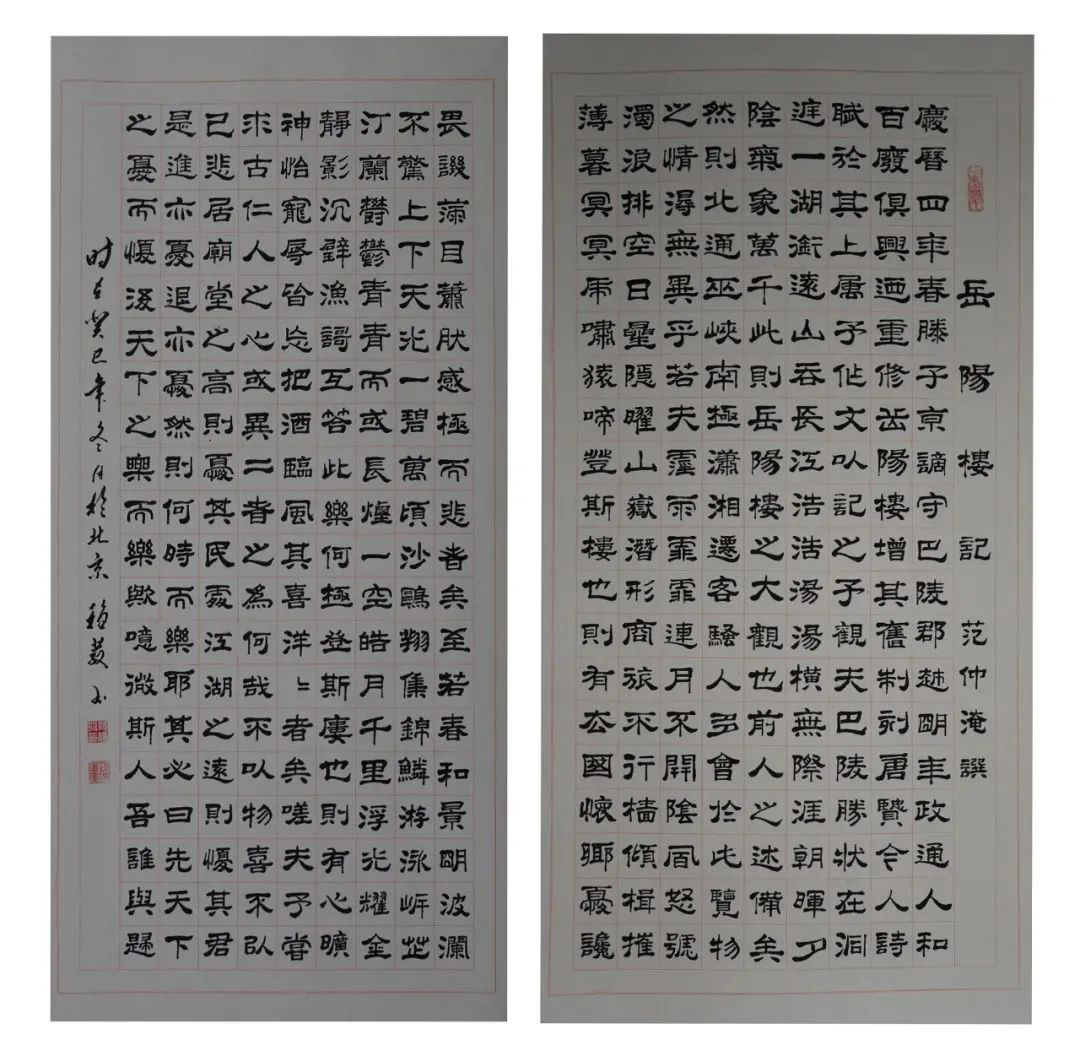 岳陽樓記 范仲淹譔
慶曆四年春滕子京謫守巴陵郡越明年政通人和
百廢俱興迺重修岳陽樓增其舊制刻唐賢令人詩
賦於其上属予作文以記之予觀夫巴陵勝狀在洞
庭一湖銜遠山吞長江浩浩湯湯橫無際涯朝暉夕
陰氣象萬千此則岳陽樓之大觀也前人之述備矣
然則北通巫峽南極瀟湘遷客騷人多會於此覽物
之情得無異乎若夫霪雨霏霏連月不開陰風怒號
濁浪排空日星隱曜山嶽潛形商旅不行檣傾楫摧
薄暮冥冥虎嘯猿啼登斯樓也則有去國懷鄉憂讒
畏譏滿目蕭然感極而悲者矣至若春和景明波瀾
不驚上下天光一碧萬頃沙鷗翔集錦鱗游泳岸芷
汀蘭鬱鬱青青而或長煙一空皓月千里浮光耀金
靜影沉璧漁謌互答此樂何極登斯廔也則有心曠
神怡寵辱皆忘把酒臨風其喜洋〻者矣嗟夫予嘗
求古仁人之心或異二者之為何哉不以物喜不以
己悲居廟堂之高則憂其民處江湖之遠則懮其君
是進亦憂退亦憂然則何時而樂耶其必曰先天下
之憂而懮後天下之樂而樂歟噫微斯人吾誰與歸
时在癸巳年冬月於北京